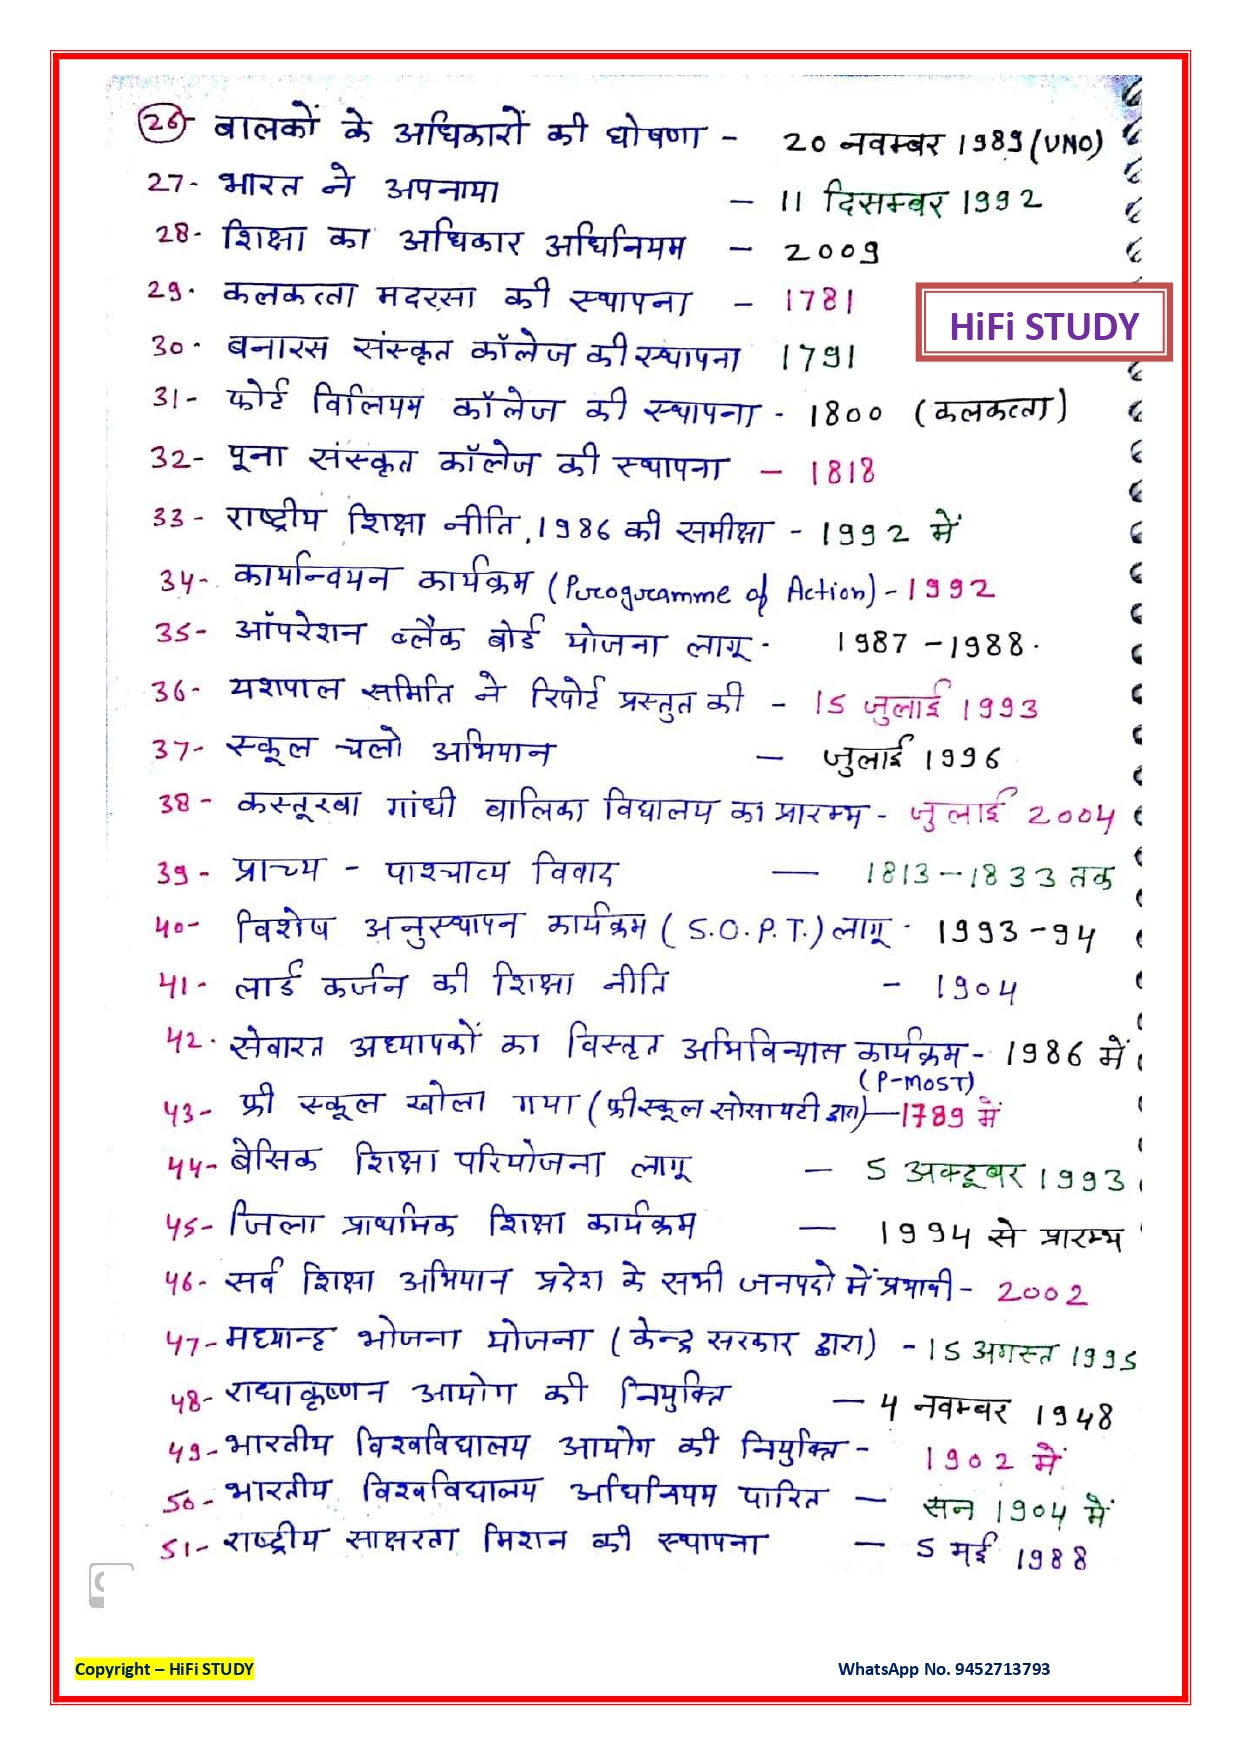 26- बालकों के अधिकारों की घोषणा - 20 नवम्बर 1989 (UNO)
27- भारत ने अपनाया - 11 दिसम्बर 1992
28- शिक्षा का अधिकार अधिनियम - 2009
29. कलकत्ता मदरसा की स्थापना - 1781
HiFi STUDY
30. बनारस संस्कृत कॉलेज की स्थापना 1791
31- फोर्ट विलियम कॉलेज की स्थापना - 1800 (कलकत्ता)
32- पूना संस्कृत कॉलेज की स्थापना - 1818
33- राष्ट्रीय शिक्षा नीति, 1986 की समीक्षा - 1992 में
34- कार्यान्वयन कार्यक्रम (Programme of Action) - 1992
35- ऑपरेशन ब्लैक बोर्ड योजना लागू - 1987 - 1988.
36- यशपाल समिति ने रिपोर्ट प्रस्तुत की - 15 जुलाई 1993
37- स्कूल चलो अभियान - जुलाई 1996
38- कस्तूरबा गांधी बालिका विद्यालय का प्रारम्भ - जुलाई 2004
39- प्राच्य - पाश्चात्य विवाद - 1813-1833 तक
40- विशेष अनुस्थापन कार्यक्रम (S.O.P.T.) लागू - 1993-94
41- लार्ड कर्जन की शिक्षा नीति - 1904
42. सेवारत अध्यापकों का विस्तृत अभिविन्यास कार्यक्रम - 1986 में
(P-MOST)
43- फ्री स्कूल खोला गया (फ्रीस्कूल सोसायटी द्वारा) - 1789 में
44- बेसिक शिक्षा परियोजना लागू - 5 अक्टूबर 1993
45- जिला प्राथमिक शिक्षा कार्यक्रम - 1994 से प्रारम्भ
46- सर्व शिक्षा अभियान प्रदेश के सभी जनपदो में प्रभावी - 2002
47- मध्यान्ह भोजना योजना (केन्द्र सरकार द्वारा) - 15 अगस्त 1995
48- राधाकृष्णन आयोग की नियुक्ति - 4 नवम्बर 1948
49- भारतीय विश्वविद्यालय आयोग की नियुक्ति - 1902 में
50- भारतीय विश्वविद्यालय अधिनियम पारित - सन 1904 में
51- राष्ट्रीय साक्षरता मिशन की स्थापना - 5 मई 1988
Copyright – HiFi STUDY WhatsApp No. 9452713793